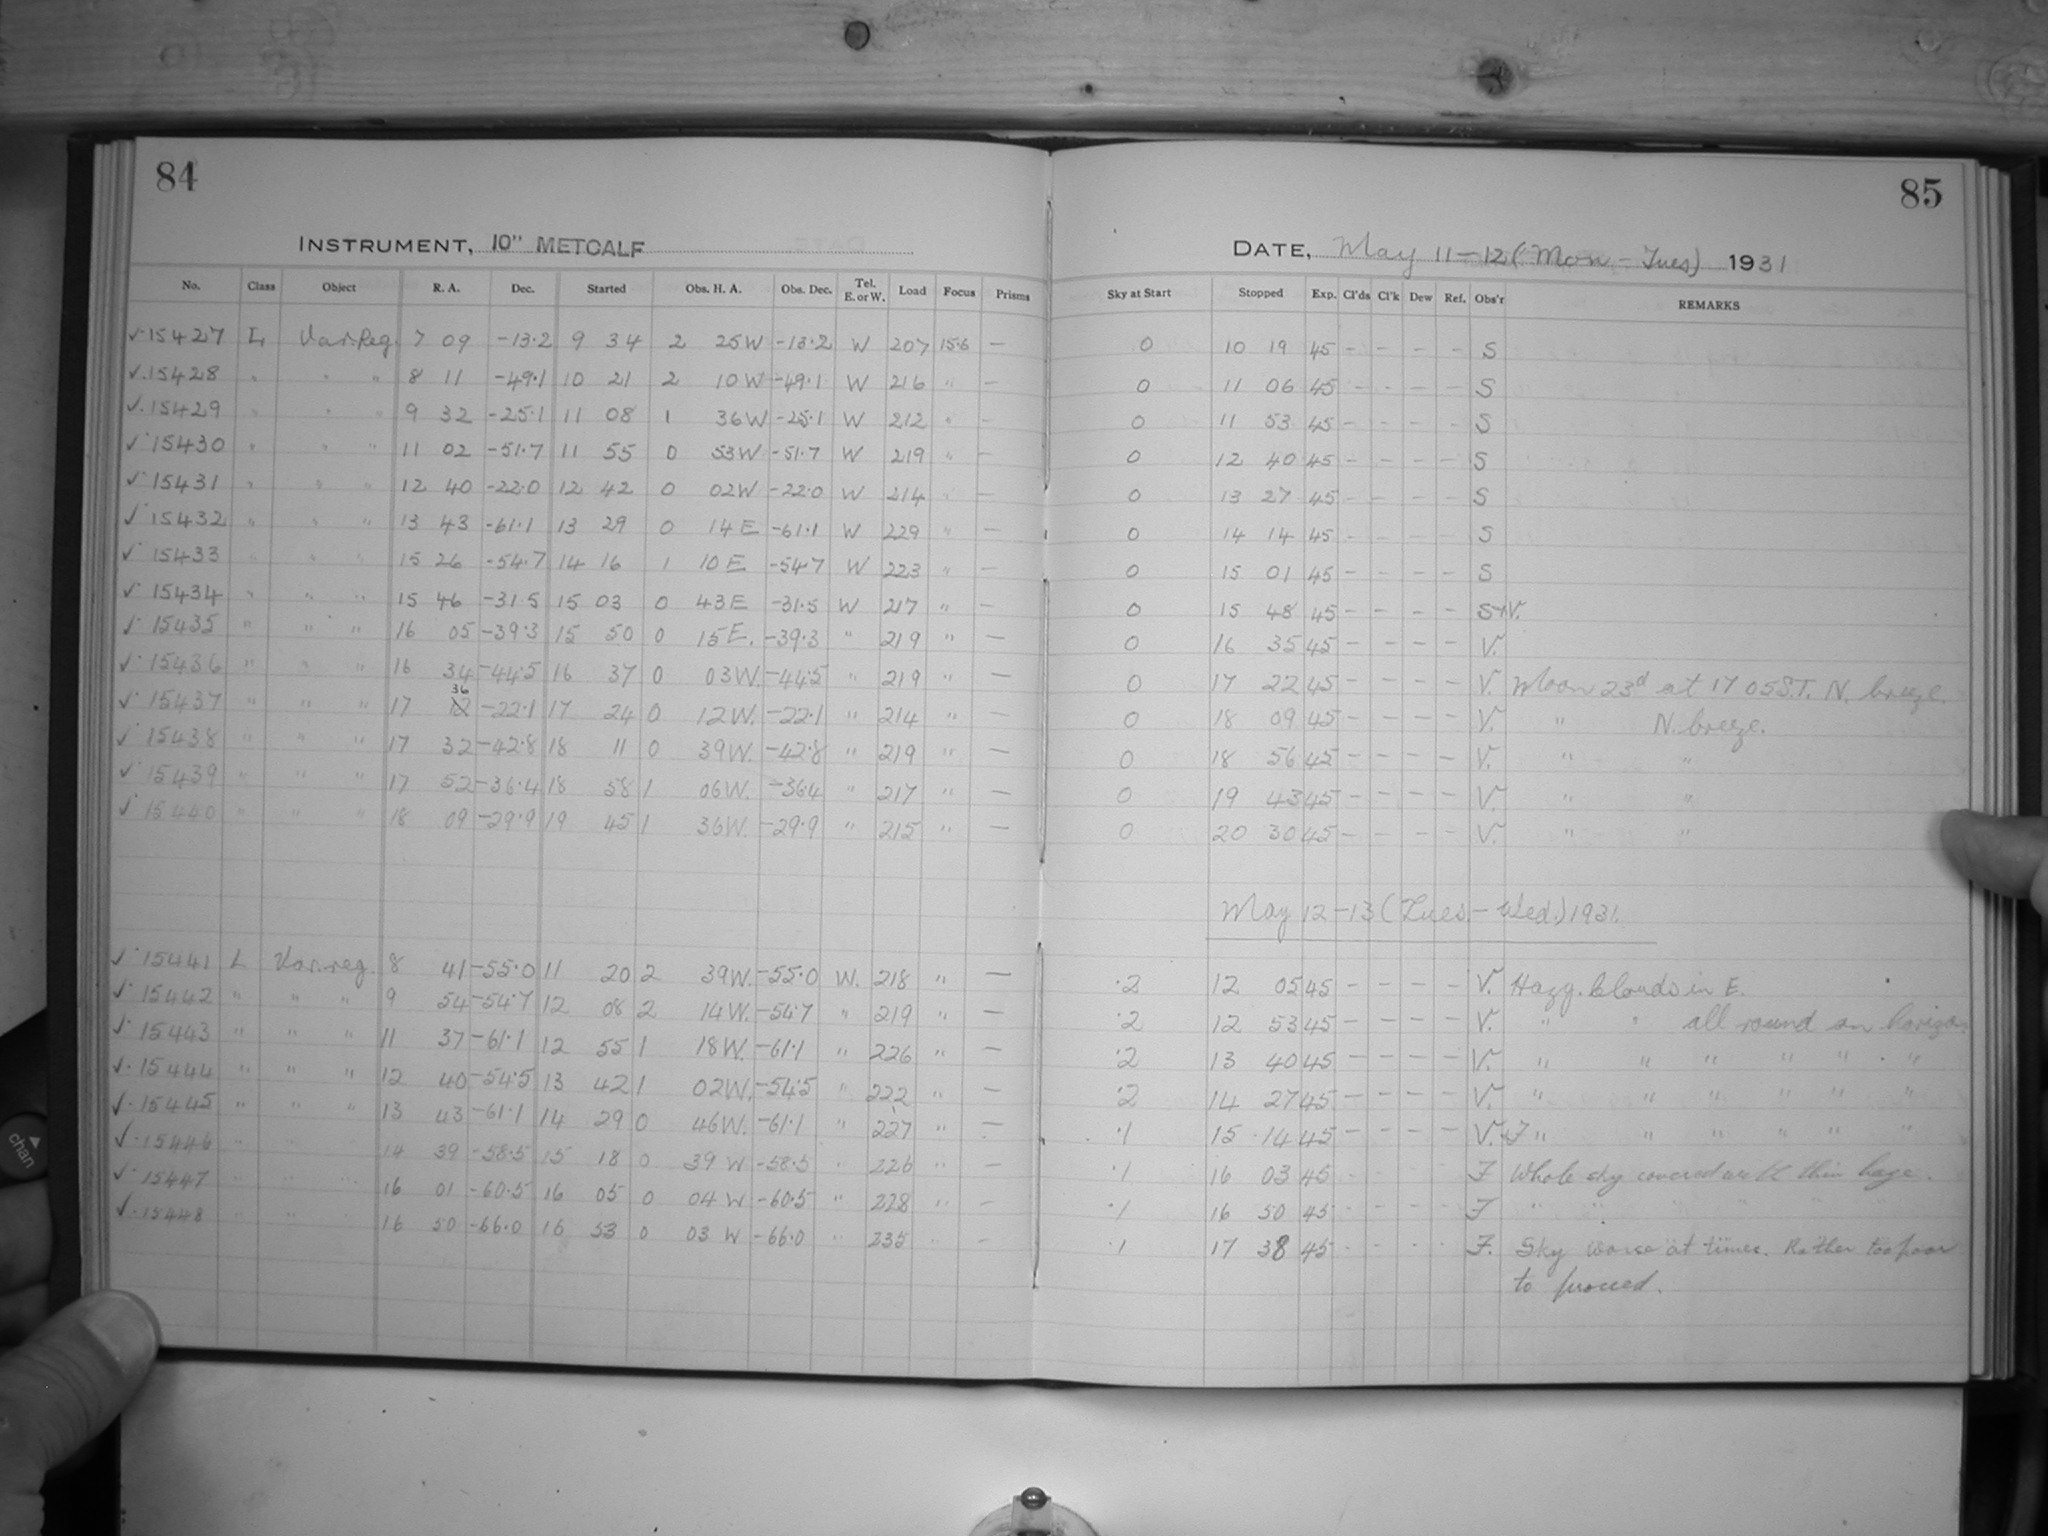 84
INSTRUMENT, 10" METCALF
No. Class Object R. A. Dec. Started Obs. H. A. Obs. Dec. Tel. E. or W. Load Focus Prisms
✓ 15427 L Var. Reg. 7 09 -13.2 9 34 2 25W -13.2 W 207 15.6 —
✓ 15428 " " " 8 11 -49.1 10 21 2 10W -49.1 W 216 " —
✓ 15429 " " " 9 32 -25.1 11 08 1 36W -25.1 W 212 " —
✓ 15430 " " " 11 02 -51.7 11 55 0 53W -51.7 W 219 " —
✓ 15431 " " " 12 40 -22.0 12 42 0 02W -22.0 W 214 " —
✓ 15432 " " " 13 43 -61.1 13 29 0 14E -61.1 W 229 " —
✓ 15433 " " " 15 26 -54.7 14 16 1 10E -54.7 W 223 " —
✓ 15434 " " " 15 46 -31.5 15 03 0 43E -31.5 W 217 " —
✓ 15435 " " " 16 05 -39.3 15 50 0 15E. -39.3 " 219 " —
✓ 15436 " " " 16 34 -44.5 16 37 0 03W. -44.5 " 219 " —
✓ 15437 " " " 17 36 12 -22.1 17 24 0 12W. -22.1 " 214 " —
✓ 15438 " " " 17 32 -42.8 18 11 0 39W. -42.8 " 219 " —
✓ 15439 " " " 17 52 -36.4 18 58 1 06W. -36.4 " 217 " —
✓ 15440 " " " 18 09 -29.9 19 45 1 36W. -29.9 " 215 " —
✓ 15441 L Var. reg. 8 41 -55.0 11 20 2 39W. -55.0 W. 218 " —
✓ 15442 " " " 9 54 -54.7 12 08 2 14W. -54.7 " 219 " —
✓ 15443 " " " 11 37 -61.1 12 55 1 18W. -61.1 " 226 " —
✓ 15444 " " " 12 40 -54.5 13 42 1 02W. -54.5 " 222 " —
✓ 15445 " " " 13 43 -61.1 14 29 0 46W. -61.1 " 227 " —
✓ 15446 " " " 14 39 -58.5 15 18 0 39 W -58.5 " 226 " —
✓ 15447 " " " 16 01 -60.5 16 05 0 04 W -60.5 " 228 " —
✓ 15448 " " " 16 50 -66.0 16 53 0 03 W -66.0 " 235 " —
85
DATE, May 11-12 (Mon - Tues) 1931
Sky at Start Stopped Exp. Cl'ds Cl'k Dew Ref. Obs'r REMARKS
0 10 19 45 - - - - S
0 11 06 45 - - - - S
0 11 53 45 - - - - S
0 12 40 45 - - - - S
0 13 27 45 - - - - S
0 14 14 45 - - - - S
0 15 01 45 - - - - S
0 15 48 45 - - - - S+V.
0 16 35 45 - - - - V.
0 17 22 45 - - - - V. Moon 23d at 17 05 S.T. N. breeze.
0 18 09 45 - - - - V. " N. breeze.
0 18 56 45 - - - - V. " "
0 19 43 45 - - - - V. " "
0 20 30 45 - - - - V. " "
May 12-13 (Tues - Wed.) 1931.
.2 12 05 45 - - - - V. Hazy. Clouds in E.
.2 12 53 45 - - - - V. " " all round on horizon
.2 13 40 45 - - - - V. " " " " " "
.2 14 27 45 - - - - V. " " " " " "
.1 15 14 45 - - - - V.+F " " " " " "
.1 16 03 45 - - - - F Whole sky covered with thin haze.
.1 16 50 45 - - - - F " " " " " "
.1 17 38 45 - - - - F. Sky worse at times. Rather too poor
to proceed.
chan